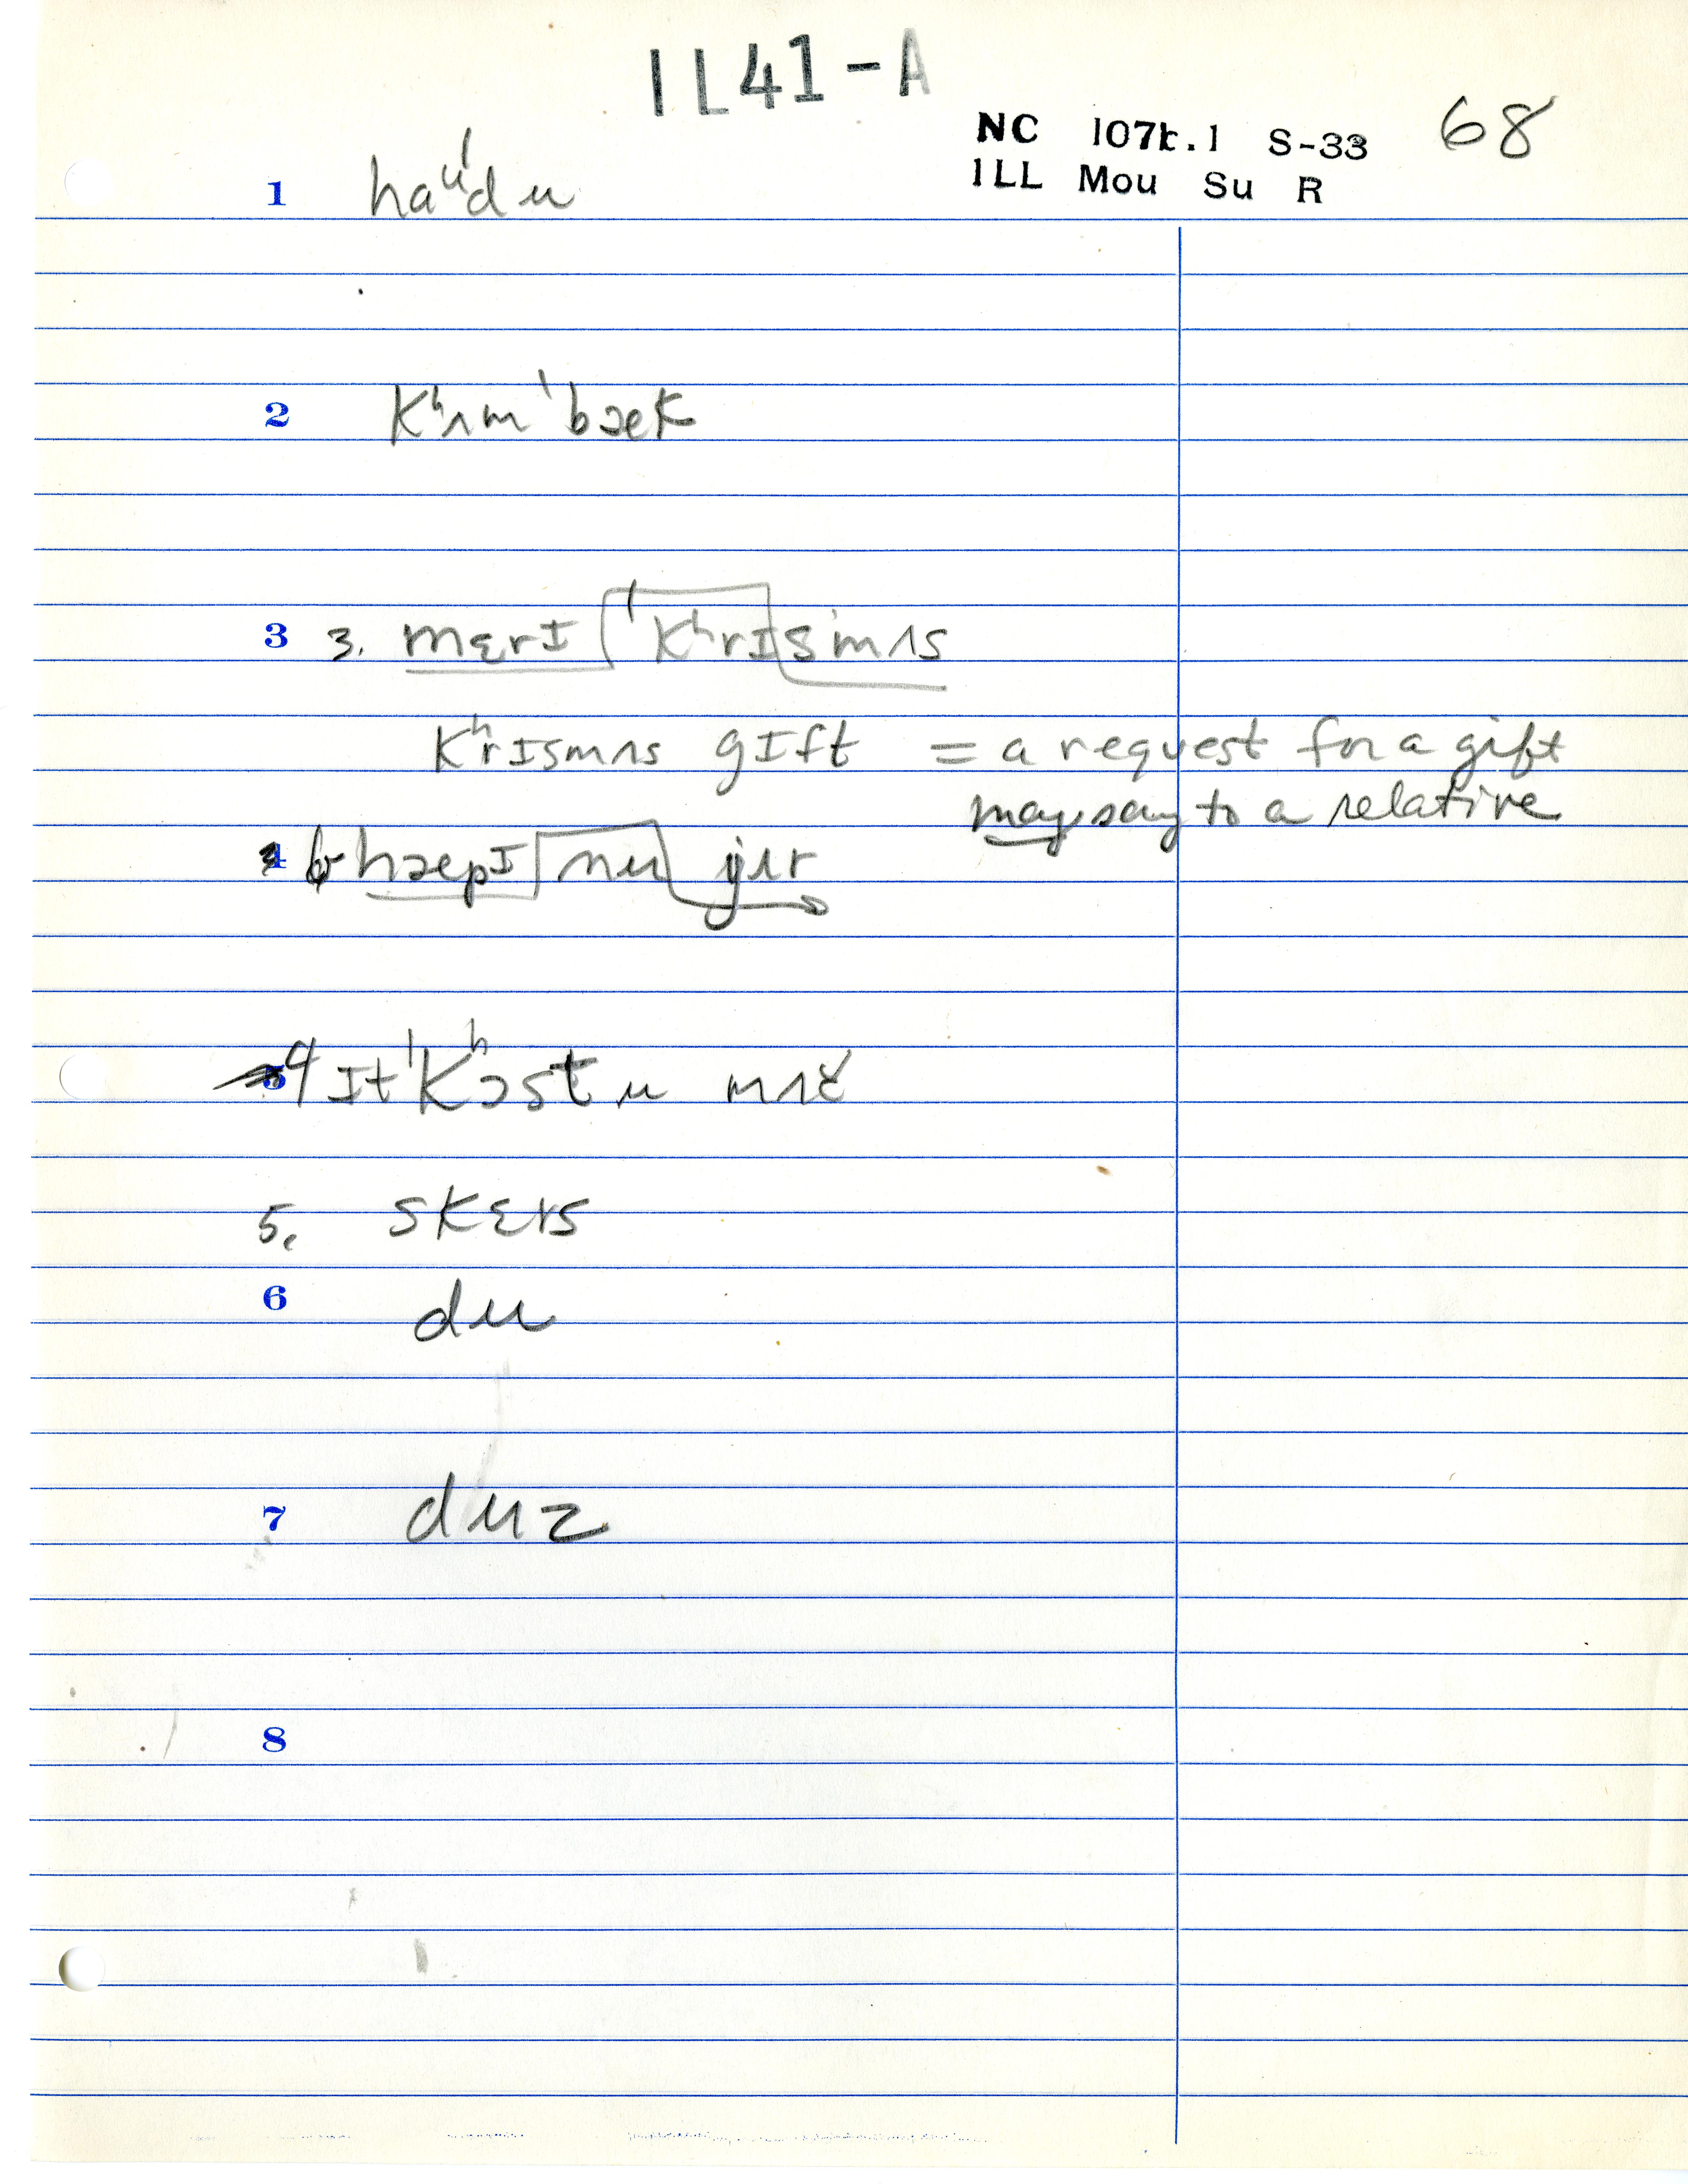 IL41-A
NC 107k.1 S-33 68
ILL Mou Su R
1 haᵘˈdu
2 Kʰʌm ˈbækK
3 3. mɛrI ˈKʰrIsmʌs
KʰrIsmʌs gIft = a request for a gift
may say to a relative
4 b hæpI nu jɪr
5 4 It ˈKʰɔst u mʌč
5. sKɛrs
6 du
7 duz
8